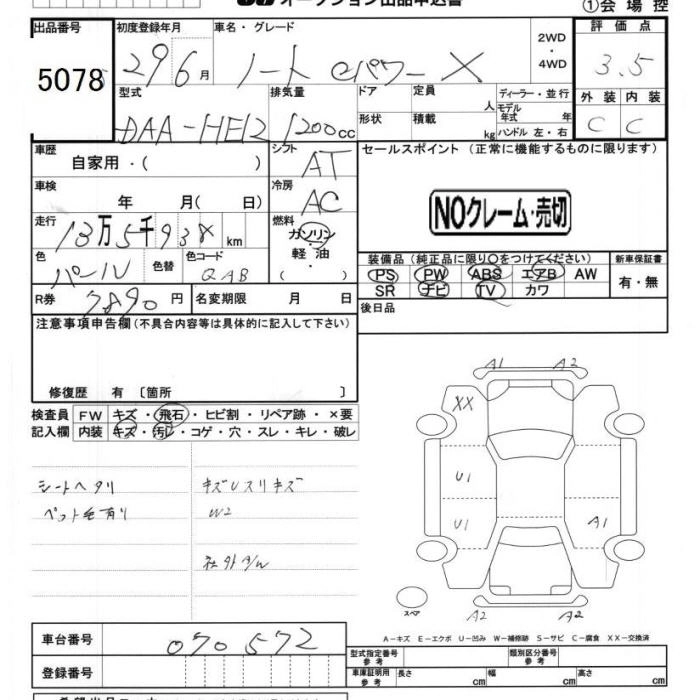 オークション出品申込書
①会場控
出品番号
5078
初度登録年月
29 6月
車名・グレード
ノート eパワー X
2WD
・
4WD
評価点
3.5
型式
DAA-HE12
排気量
1200cc
ドア
形状
定員
人
積載
kg
ディーラー・並行
モデル年式
年
ハンドル 左・右
外装
内装
C
C
車歴
自家用・( )
シフト
AT
車検
年 月( 日)
冷房
AC
走行
13万5千938km
燃料
ガソリン
・
軽油
・
( )
色
パール
色替
色コード
QAB
R券
7890円
名変期限 月 日
セールスポイント(正常に機能するものに限ります)
NOクレーム・売切
装備品(純正品に限り○をつけてください)
PS PW ABS エアB AW
SR ナビ TV カワ
新車保証書
有・無
後日品
注意事項申告欄(不具合内容等は具体的に記入して下さい)
修復歴 有〔箇所 〕
検査員
記入欄
FW キズ・飛石・ヒビ割・リペア跡・×要
内装 キズ・汚レ・コゲ・穴・スレ・キレ・破レ
シートヘタリ
ペット毛有り
キズUスリキズ
W2
社外タイヤ
A1 A2
XX
U1
U1
A1
A2 A2
スペア
A-キズ E-エクボ U-凹み W-補修跡 S-サビ C-腐食 XX-交換済
車台番号
070572
登録番号
型式指定番号
参考
類別区分番号
参考
車庫証明用
参考
長さ cm
幅 cm
高さ cm